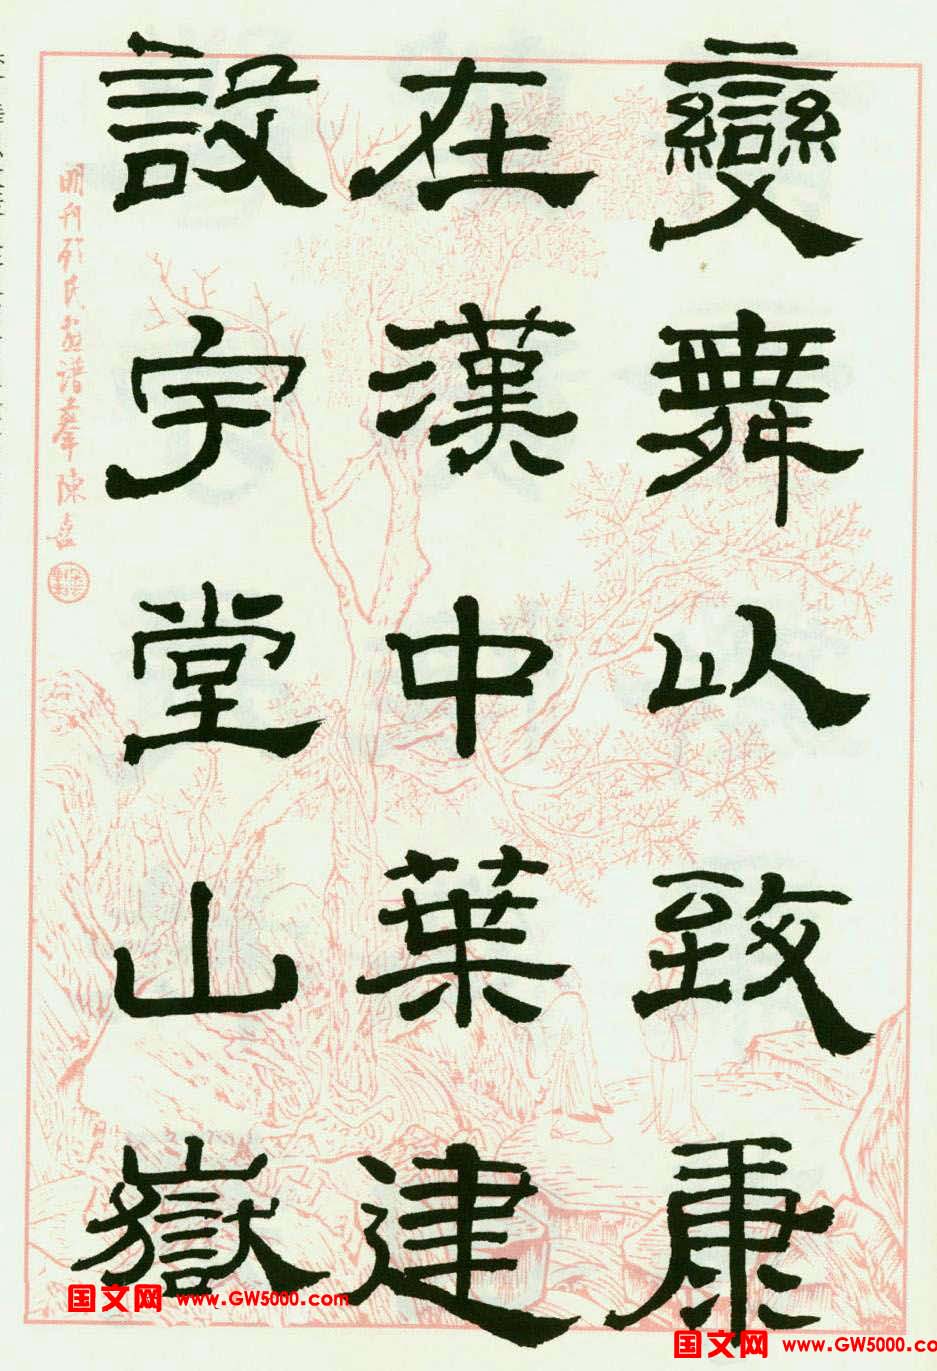 變舞以致康
在漢中葉建
設宇堂山嶽
明刊
国文网 www.GW5000.com
国文网 www.GW5000.co